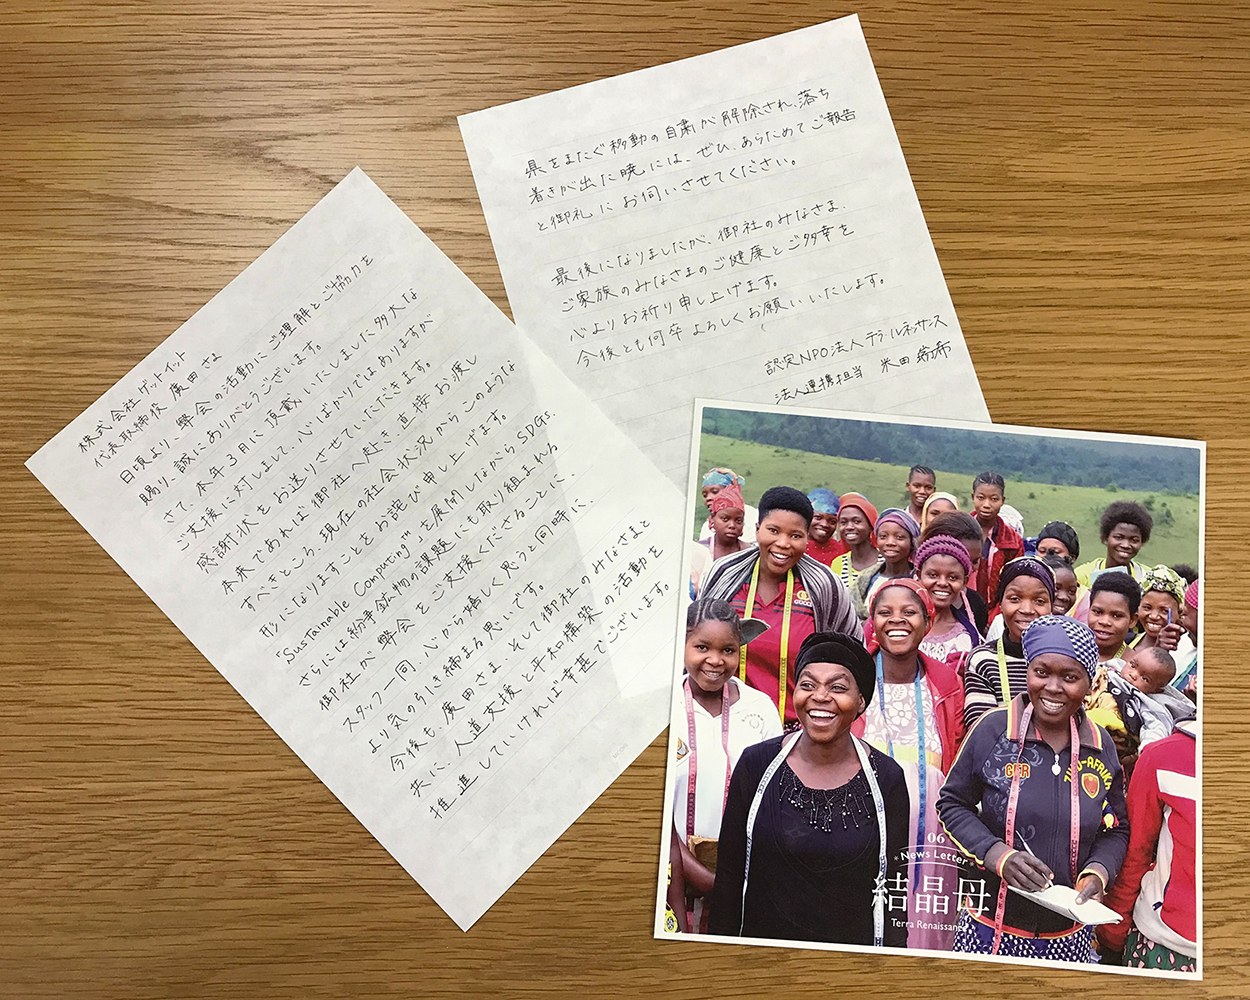 株式会社ゲットイット
代表取締役 廣田 さま
日頃より、弊会の活動にご理解とご協力を
賜り、誠にありがとうございます。
さて、本年3月に頂戴いたしました多大な
ご支援に対しまして、心ばかりではありますが
感謝状をお送りさせていただきます。
本来であれば御社へ赴き、直接お渡し
すべきところ、現在の社会状況からこのような
形になりますことをお詫び申し上げます。
「Sustainable Computing™」を展開しながらSDGs、
さらには紛争鉱物の課題にも取り組まれる
御社が弊会をご支援くださることに、
スタッフ一同、心から嬉しく思うと同時に、
より気の引き締まる思いです。
今後も、廣田さま、そして御社のみなさまと
共に、人道支援と平和構築の活動を
推進していければ幸甚でございます。
県をまたぐ移動の自粛が解除され、落ち
着きが出た暁には、ぜひ、あらためてご報告
と御礼にお伺いさせてください。
最後になりましたが、御社のみなさま、
ご家族のみなさまのご健康とご多幸を
心よりお祈り申し上げます。
今後とも何卒よろしくお願いいたします。
認定NPO法人テラ・ルネッサンス
法人連携担当 米田
GUCCI
06
News Letter
結晶母
Terra Renaissance